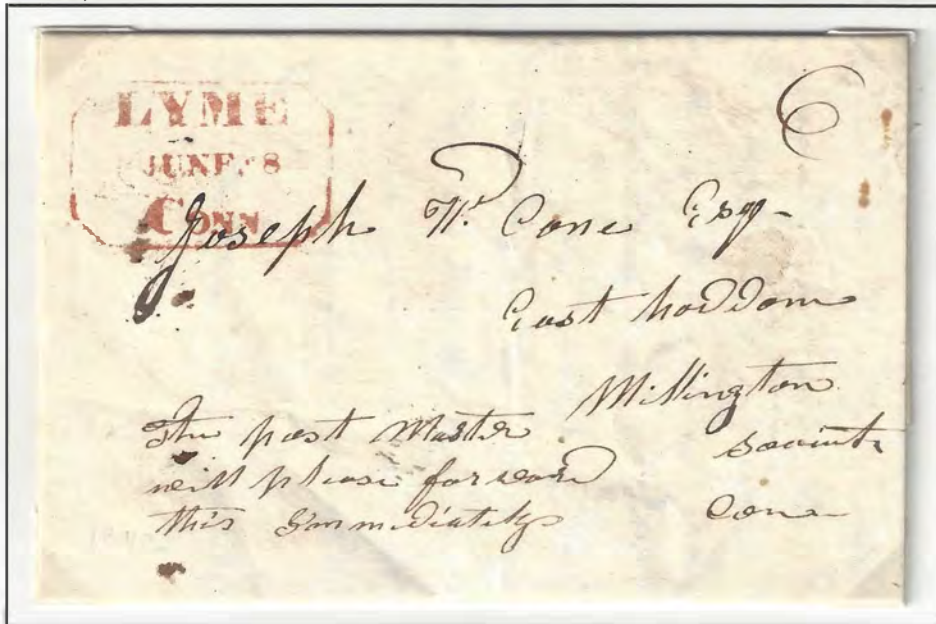 LYME
JUNE 8
CONN
6
Joseph W. Cone Esqr
East Haddam
Millington
Society
Conn
The post Master
will please forward
this Immediately